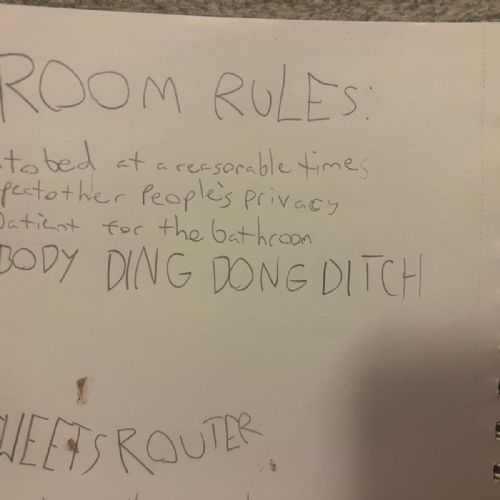 ROOM RULES:
to bed at a reasonable times
pect other People's privacy
patient for the bathroom
BODY DING DONG DITCH
WEETS ROUTER